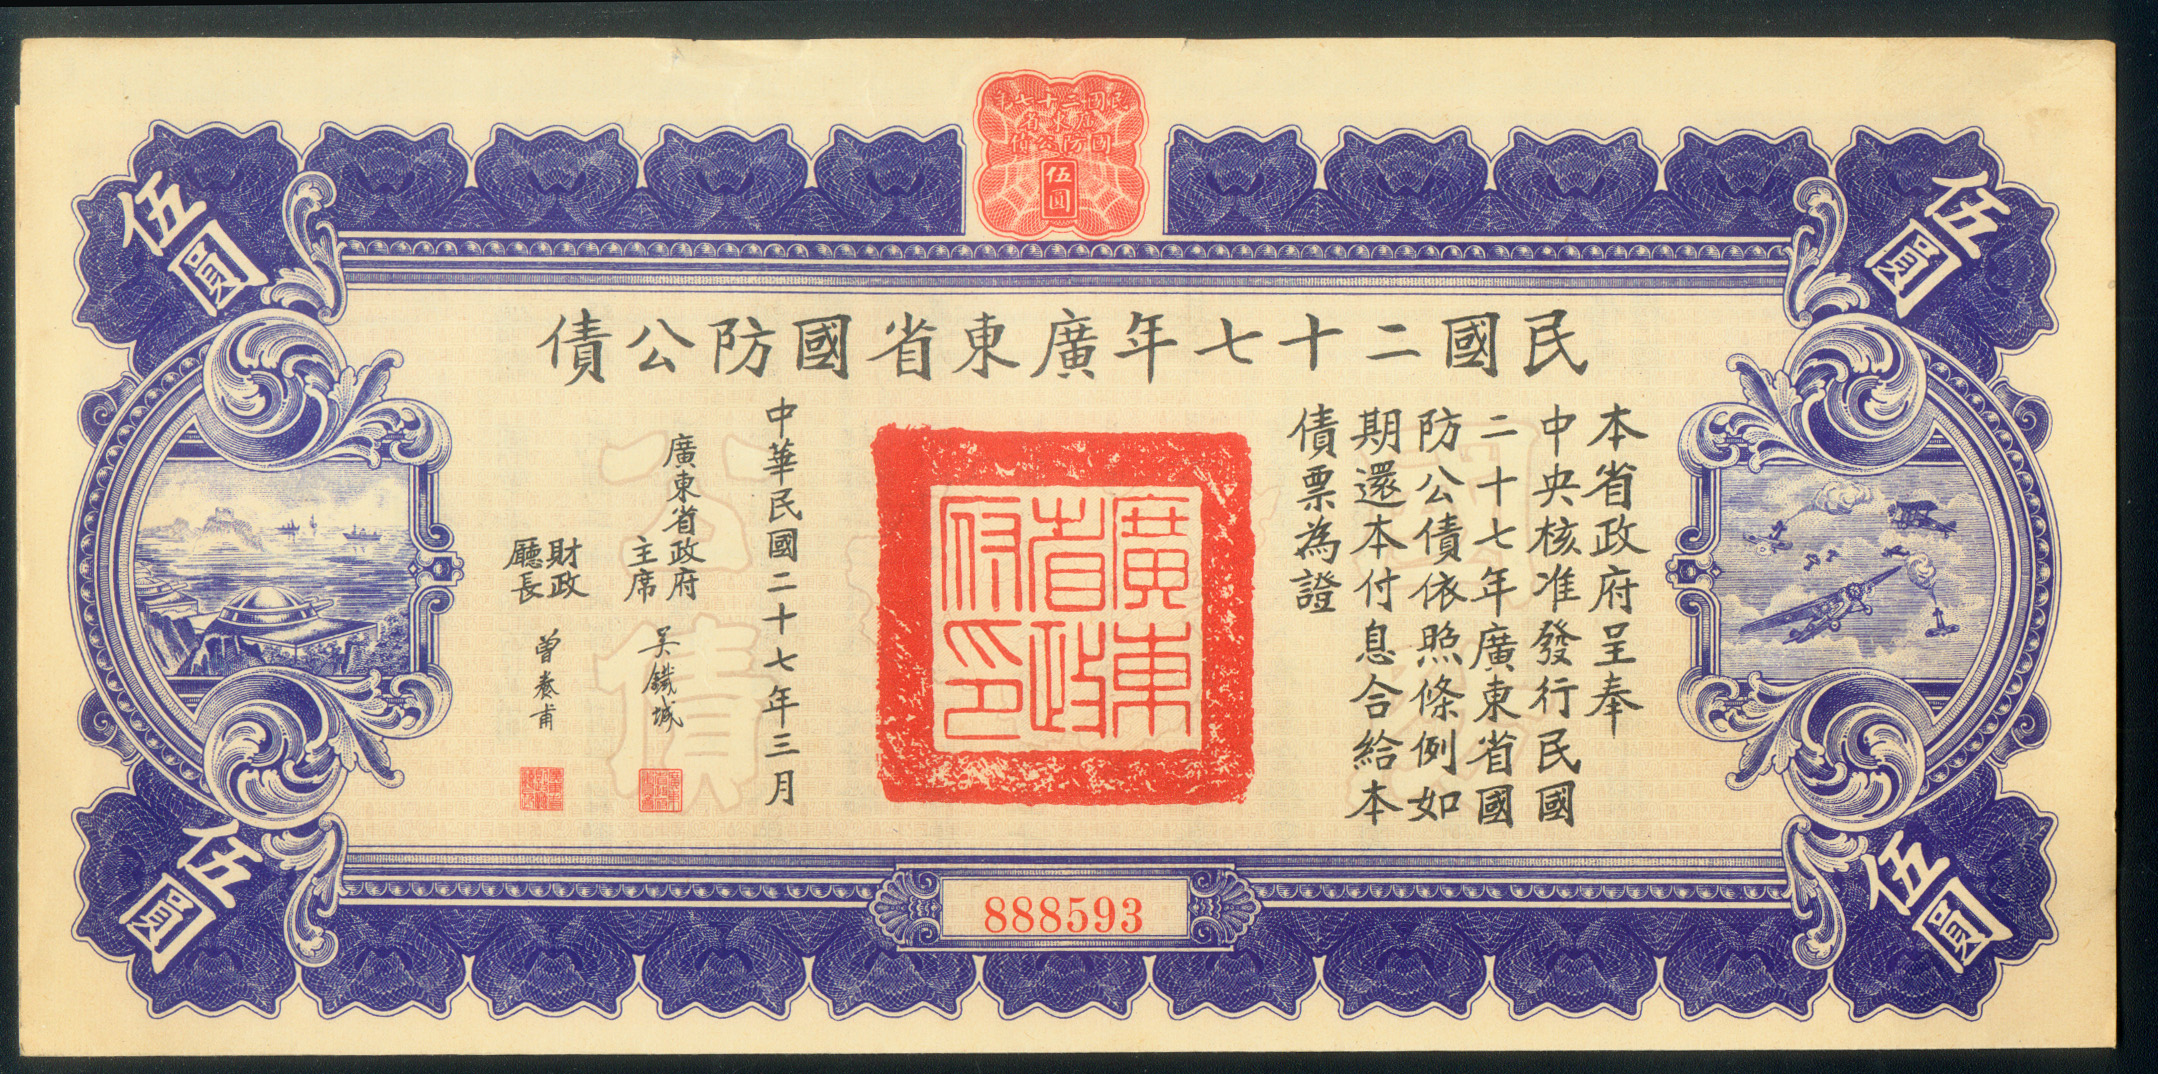 民國二十七年
廣東省
國防公債
伍圓
伍圓
伍圓
民國二十七年廣東省國防公債
本省政府呈奉
中央核准發行民國
二十七年廣東省國
防公債依照條例如
期還本付息合給本
債票為證
廣東省政府印
中華民國二十七年三月
廣東省政府
主席
吳鐵城
財政
廳長
曾養甫
國防
公債
888593
伍圓
伍圓